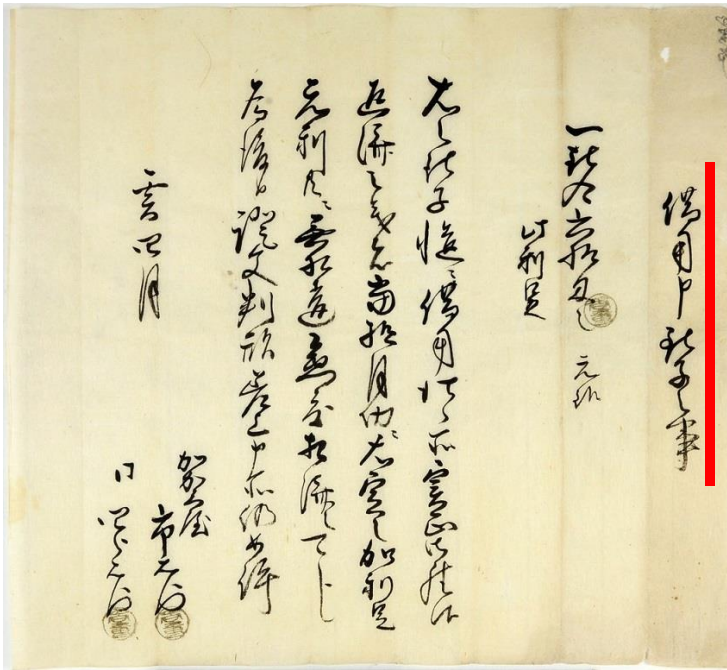 借用申銀子之事
一銀合六拾目也 元銀
此利足
右之銀子慥ニ借用仕候所実正御座候
返済之義者当拾月切ニ右定之加利足
元利共ニ無相違急度相済可申候
為後日証文判形差上申所仍如件
寅四月
加賀屋
市兵衛
同